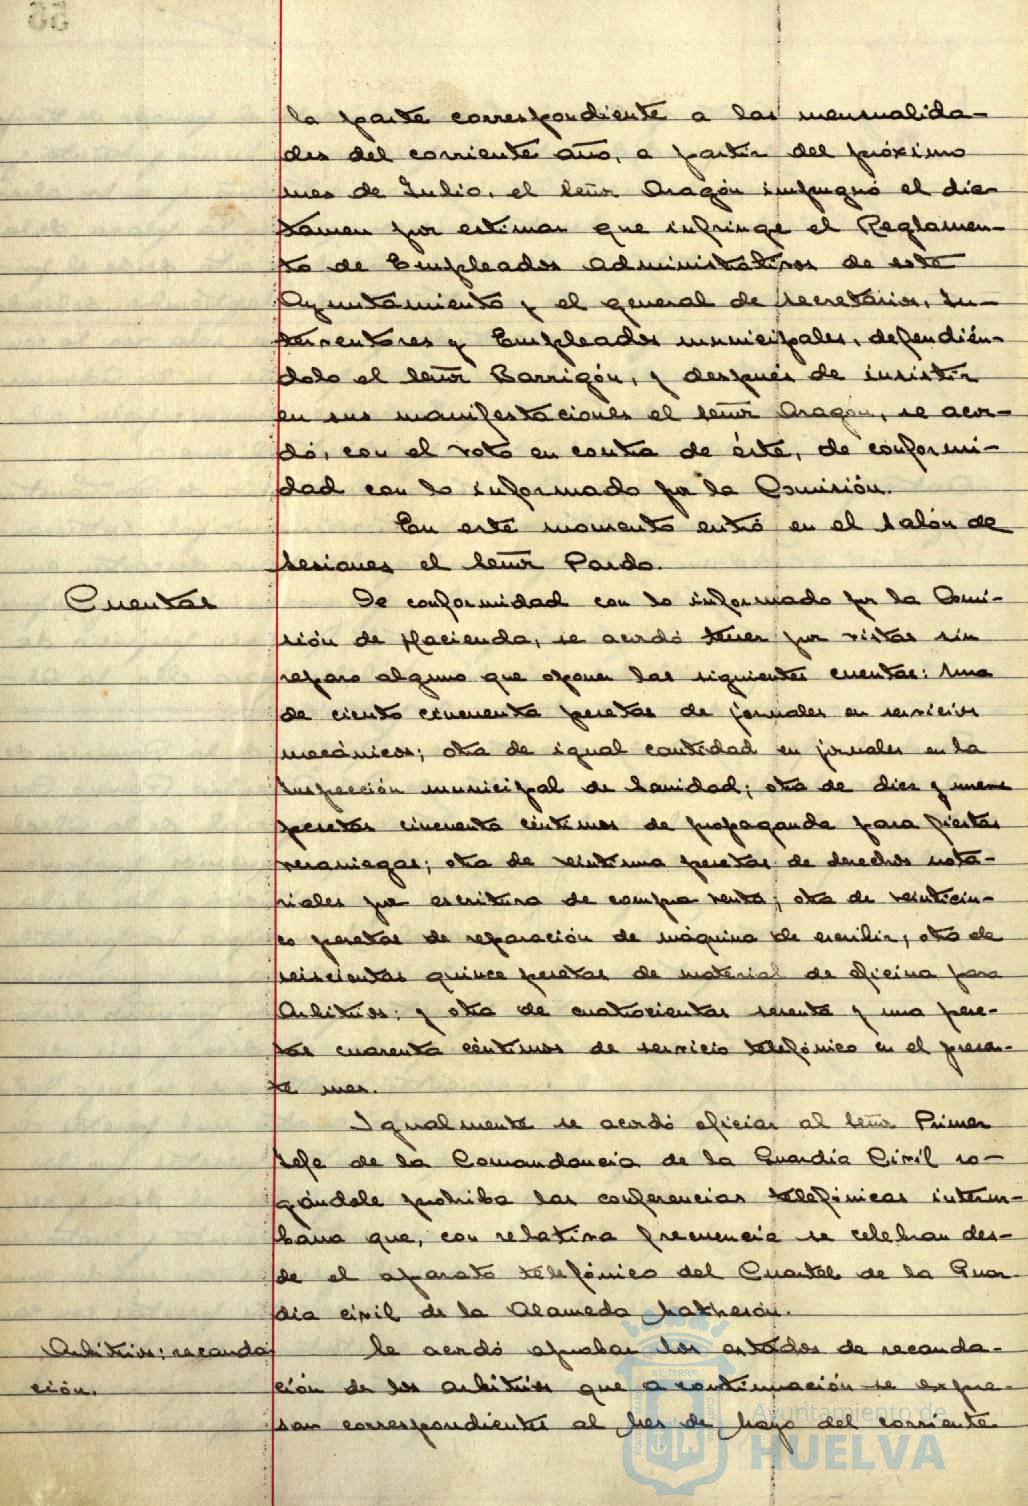 la parte correspondiente a las mensualida-
des del corriente año, a partir del próximo
mes de Julio, el Señor Aragón impugnó el dic-
tamen por estimar que infringe el Reglamen-
to de Empleados administrativos de este
Ayuntamiento y el general de Secretarios, In-
terventores y Empleados municipales, defendién-
dolo el Señor Barrigón, y después de insistir
en sus manifestaciones el Señor Aragón, se acor-
dó, con el voto en contra de éste, de conformi-
dad con lo informado por la Comisión.
En este momento entró en el Salón de
Sesiones el Señor Pardo.
Cuentas
De conformidad con lo informado por la Comi-
sión de Hacienda, se acordó tener por vistas sin
reparo alguno que oponer las siguientes cuentas: Una
de ciento cincuenta pesetas de jornales en servicios
mecánicos; otra de igual cantidad en jornales en la
Inspección municipal de Sanidad; otra de diez y nueve
pesetas cincuenta céntimos de propaganda para fiestas
veraniegas; otra de veintiuna pesetas de derechos nota-
riales por escritura de compra venta; otra de veinticin-
co pesetas de reparación de máquina de escribir; otra de
seiscientas quince pesetas de material de oficina para
Arbitrios; y otra de cuatrocientas sesenta y una pese-
tas cuarenta céntimos de servicio telefónico en el presen-
te mes.
Igualmente se acordó oficiar al Señor Primer
Jefe de la Comandancia de la Guardia Civil ro-
gándole prohiba las conferencias telefónicas interur-
bana que, con relativa frecuencia se celebran des-
de el aparato telefónico del Cuartel de la Guar-
dia civil de la Alameda Matheson.
Arbitrios: recauda
ción.
Se acordó aprobar los estados de recauda-
ción de los arbitrios que a continuación se expre-
san correspondientes al Mes de Mayo del corriente
Ayuntamiento de
HUELVA